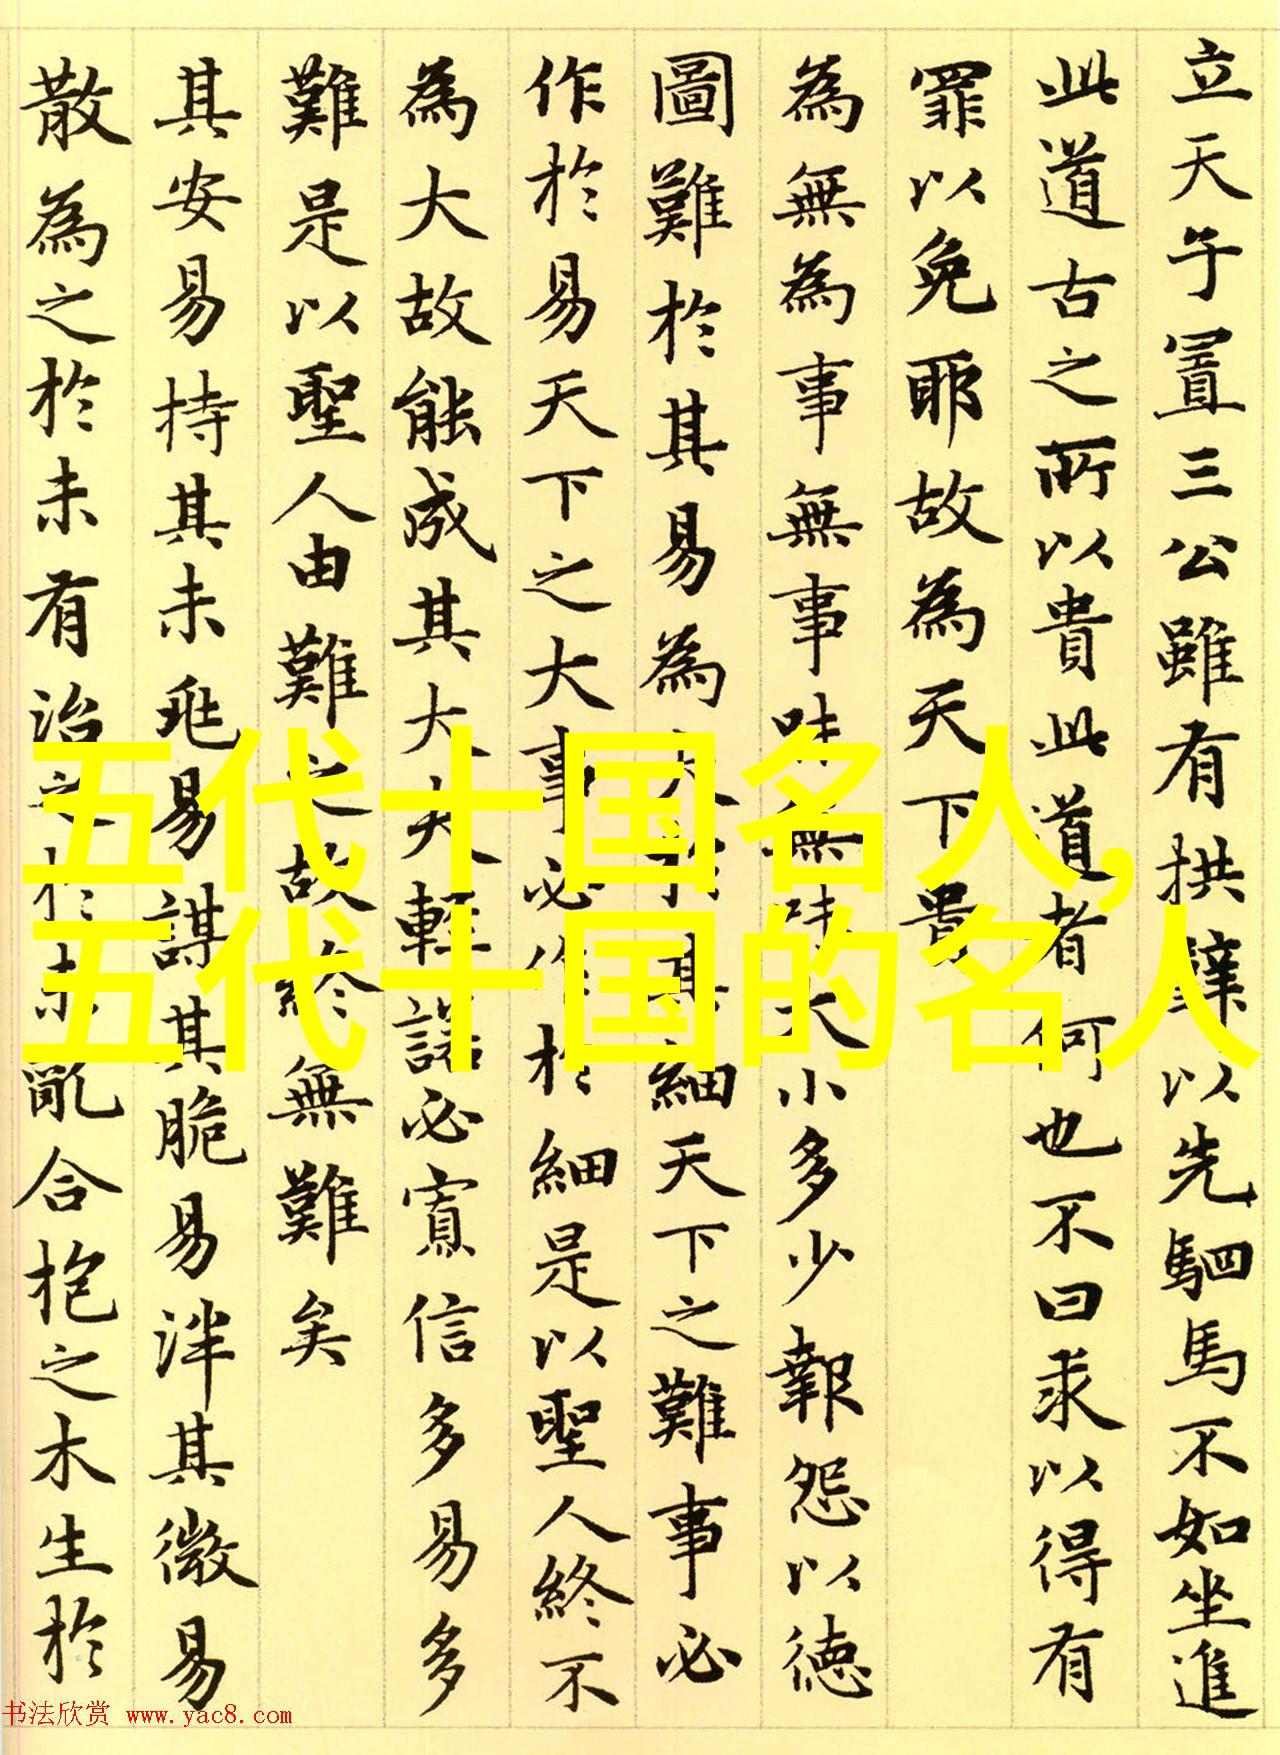 立天子置三公雖有拱璧以先駟馬不如坐進
此道古之所以貴此道者何也不曰求以得有
罪以免耶故為天下貴
為無為事無事味無味大小多少報怨以德
圖難於其易為大於其細天下之難事必
作於易天下之大事必作於細是以聖人終不
為大故能成其大夫輕諾必寡信多易多
難是以聖人由難之故終無難矣
其安易持其未兆易謀其脆易泮其微易
散為之於未有治之於未亂合抱之木生於
五代十国名人,
五代十国的名人
书法欣赏 www.yac8.com